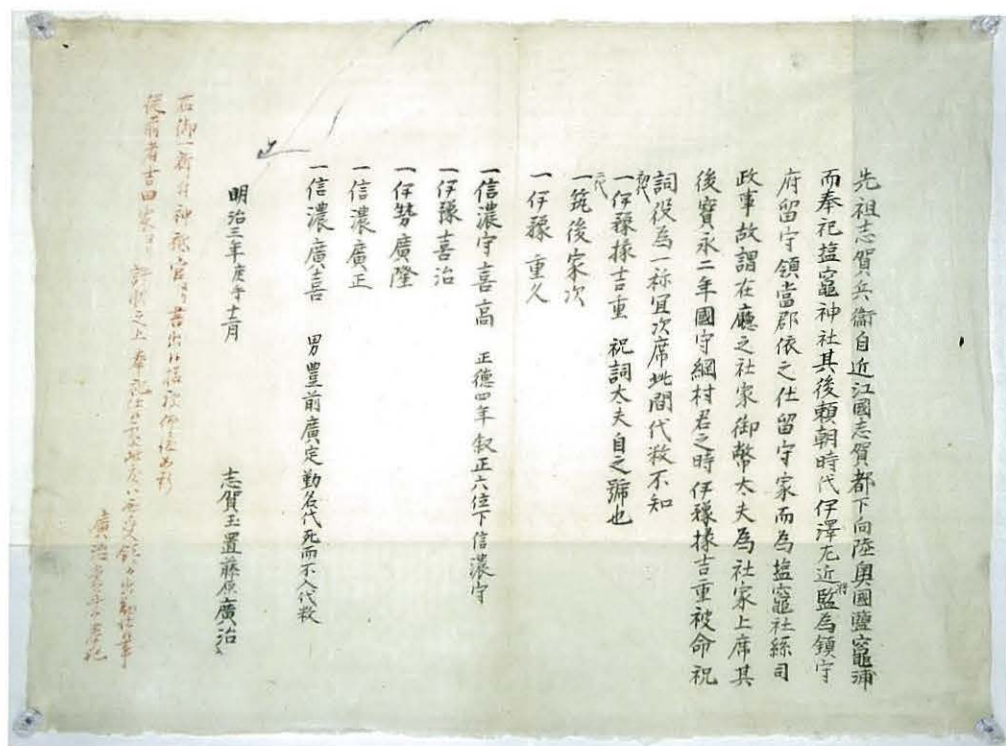 先祖志賀兵衞自近江國志賀都下向陸奥國鹽竈浦
而奉祀塩竈神社其後頼朝時代伊澤左近将監為鎮守
府留守領當郡依之仕留守家而為塩竈社縣司
政事故謂在廳之社家御幣太夫為社家上席其
後寳永二年國守綱村君之時伊豫掾吉重被命祝
詞役為一祢宜次席此間代数不知
初代
一伊豫掾吉重 祝詞太夫自之號也
二代
一筑後家次
一伊豫重久
一信濃守喜高 正德四年叙正六位下信濃守
一伊豫喜治
一伊勢廣隆
一信濃廣正
一信濃廣喜 男豊前廣定勤名代死而不入代数
明治三年庚午十二月
志賀玉置藤原廣治
右御一新ニ付神祇官
従前者吉田家
之上奉祀仕
廣治